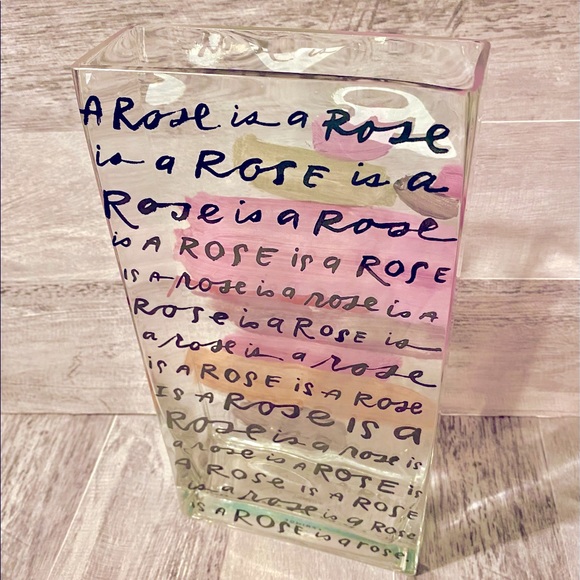 A Rose is a Rose
is a ROSE is a
Rose is a Rose
is A ROSE is a ROSE
IS A rose is a rose is A
Rose is a Rose is
a rose is a rose
is A ROSE is A Rose
IS A Rose IS a
Rose is a rose is
a rose is A ROSE is
A ROSE IS A ROSE
is a rose is a Rose
is A ROSE is a rose